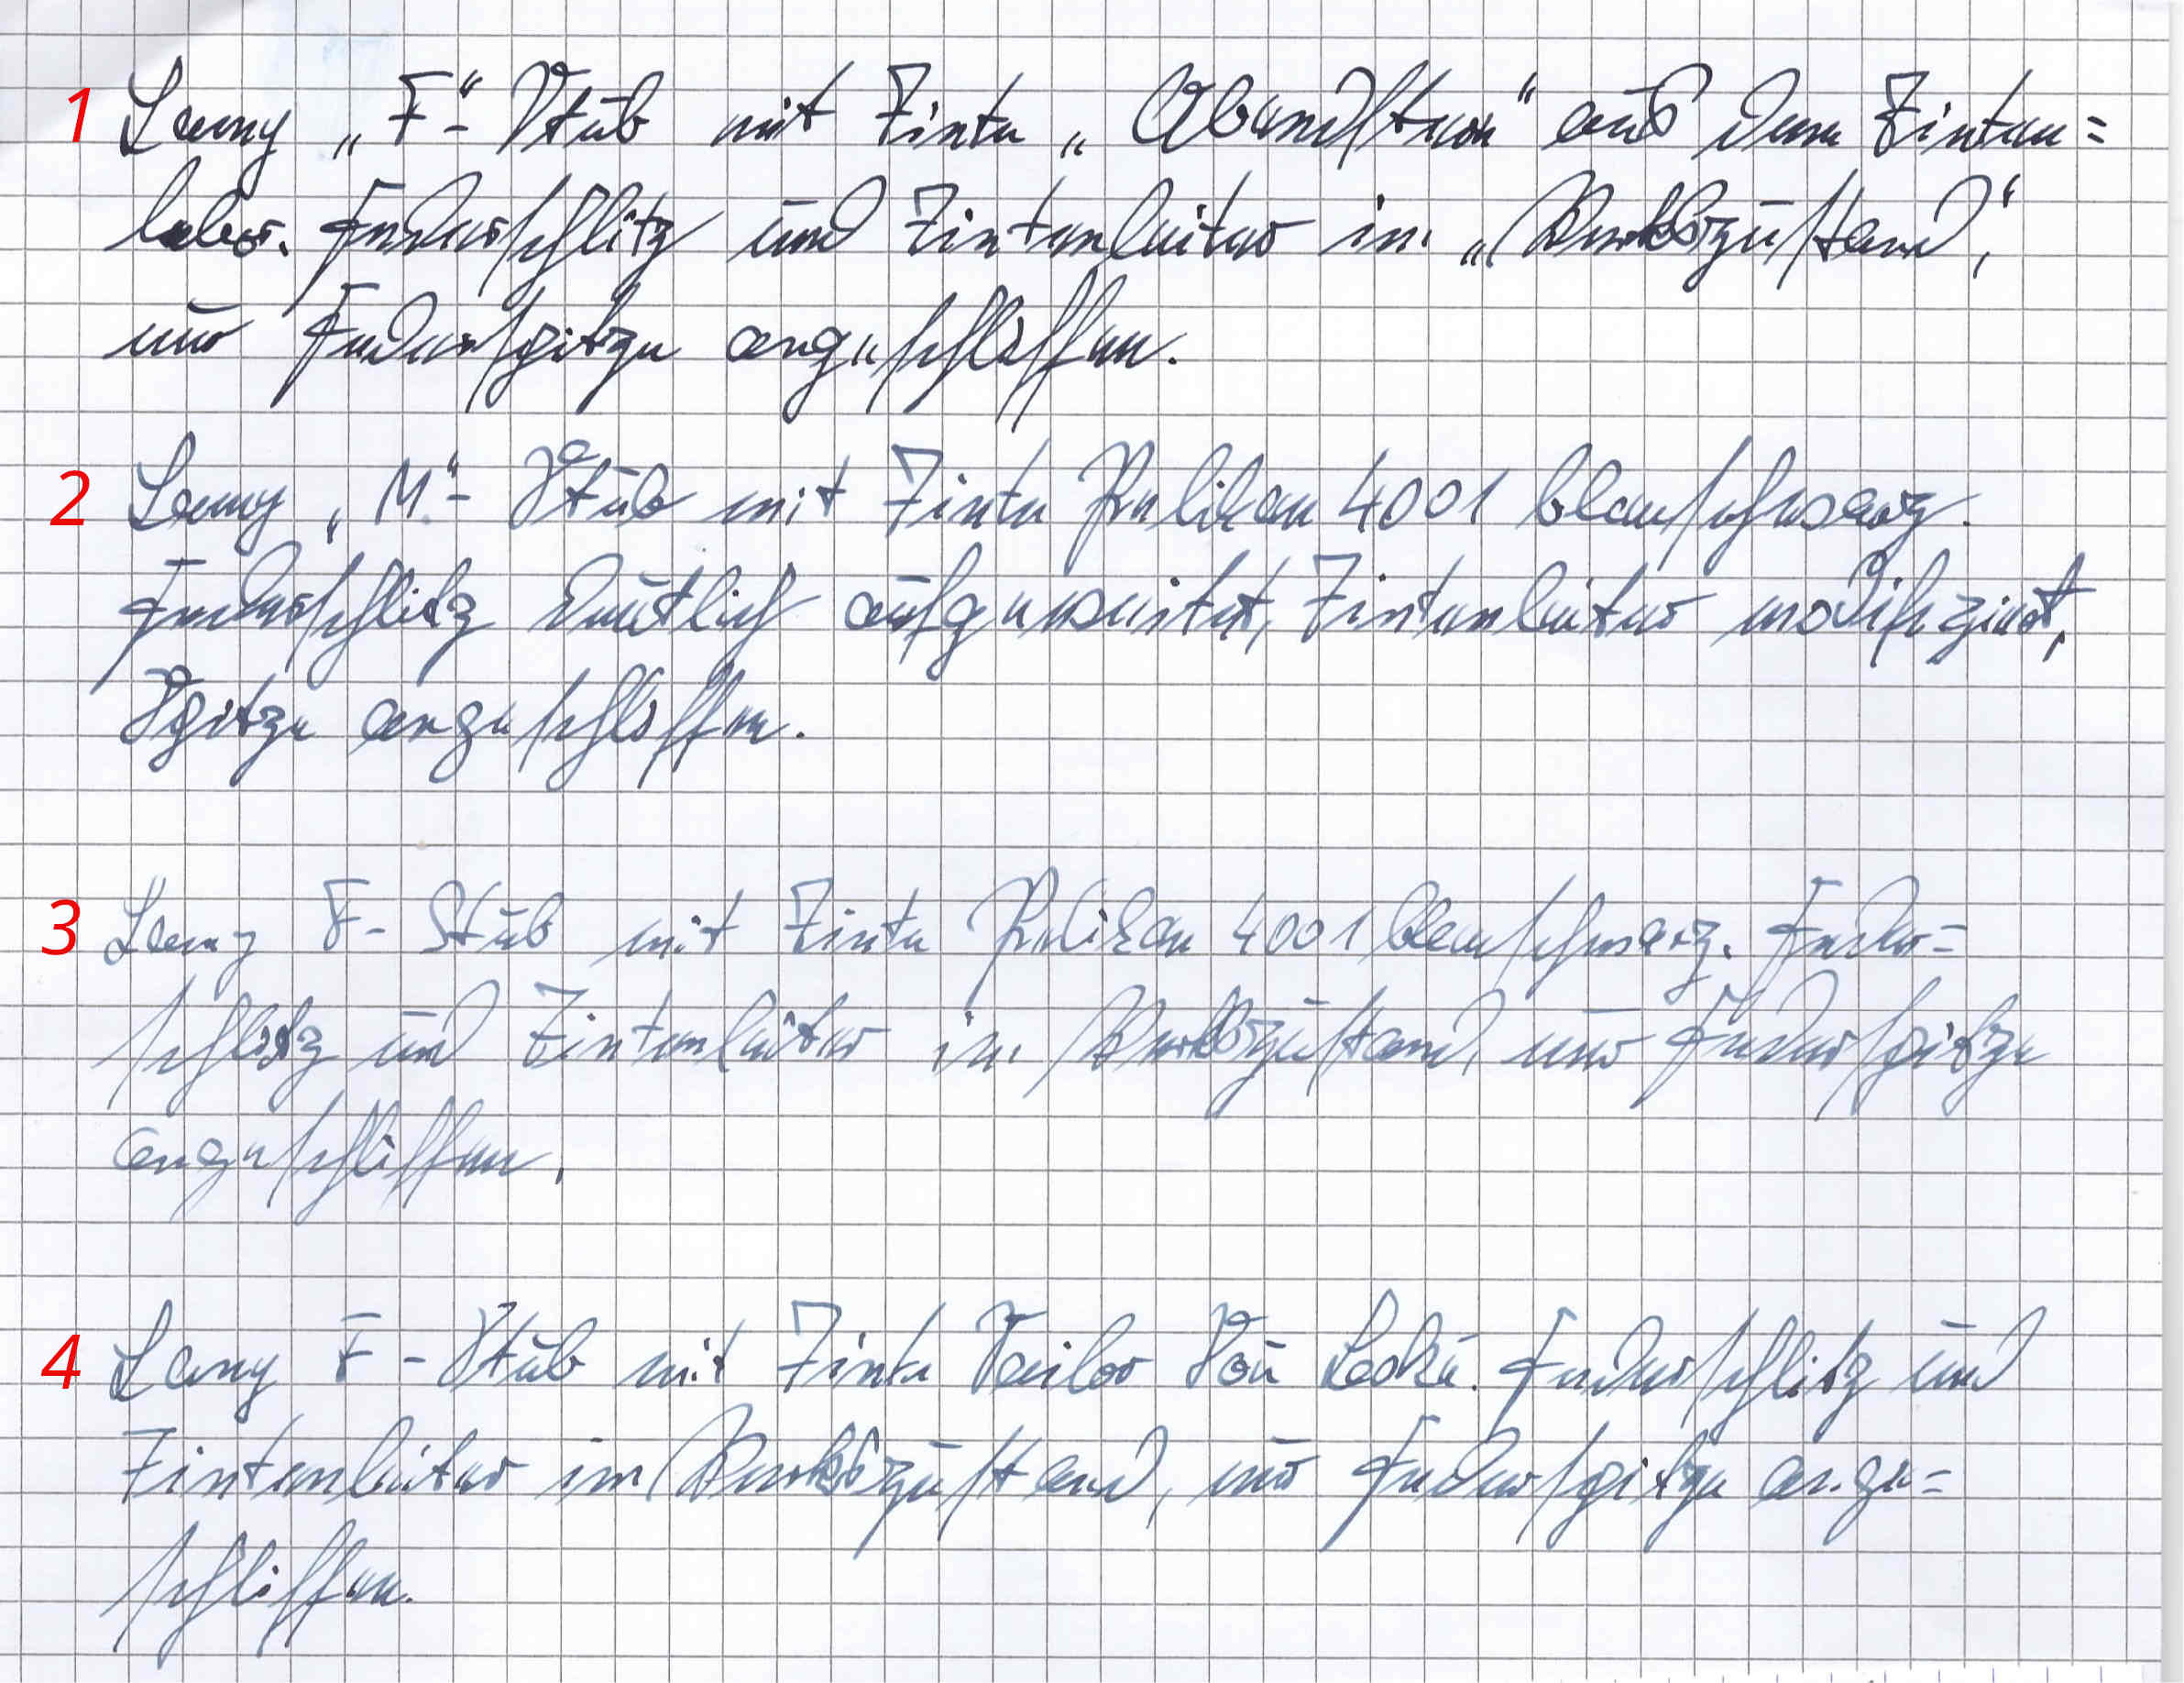 1 Lamy „F“- Stub mit Tinte „Abendstern“ aus dem Tinten=
labor. Federschlitz und Tintenleiter im „Werkszustand“,
nur Federspitze angeschliffen.
2 Lamy „M“- Stub mit Tinte Pelikan 4001 blauschwarz.
Federschlitz deutlich aufgeweitet, Tintenleiter modifiziert,
Spitze angeschliffen.
3 Lamy F- Stub mit Tinte Pelikan 4001 blauschwarz. Feder=
schlitz und Tintenleiter im Werkszustand, nur Federspitze
angeschliffen.
4 Lamy F - Stub mit Tinte Sailor Sou Boku. Federschlitz und
Tintenleiter im Werkszustand, nur Federspitze ange=
schliffen.